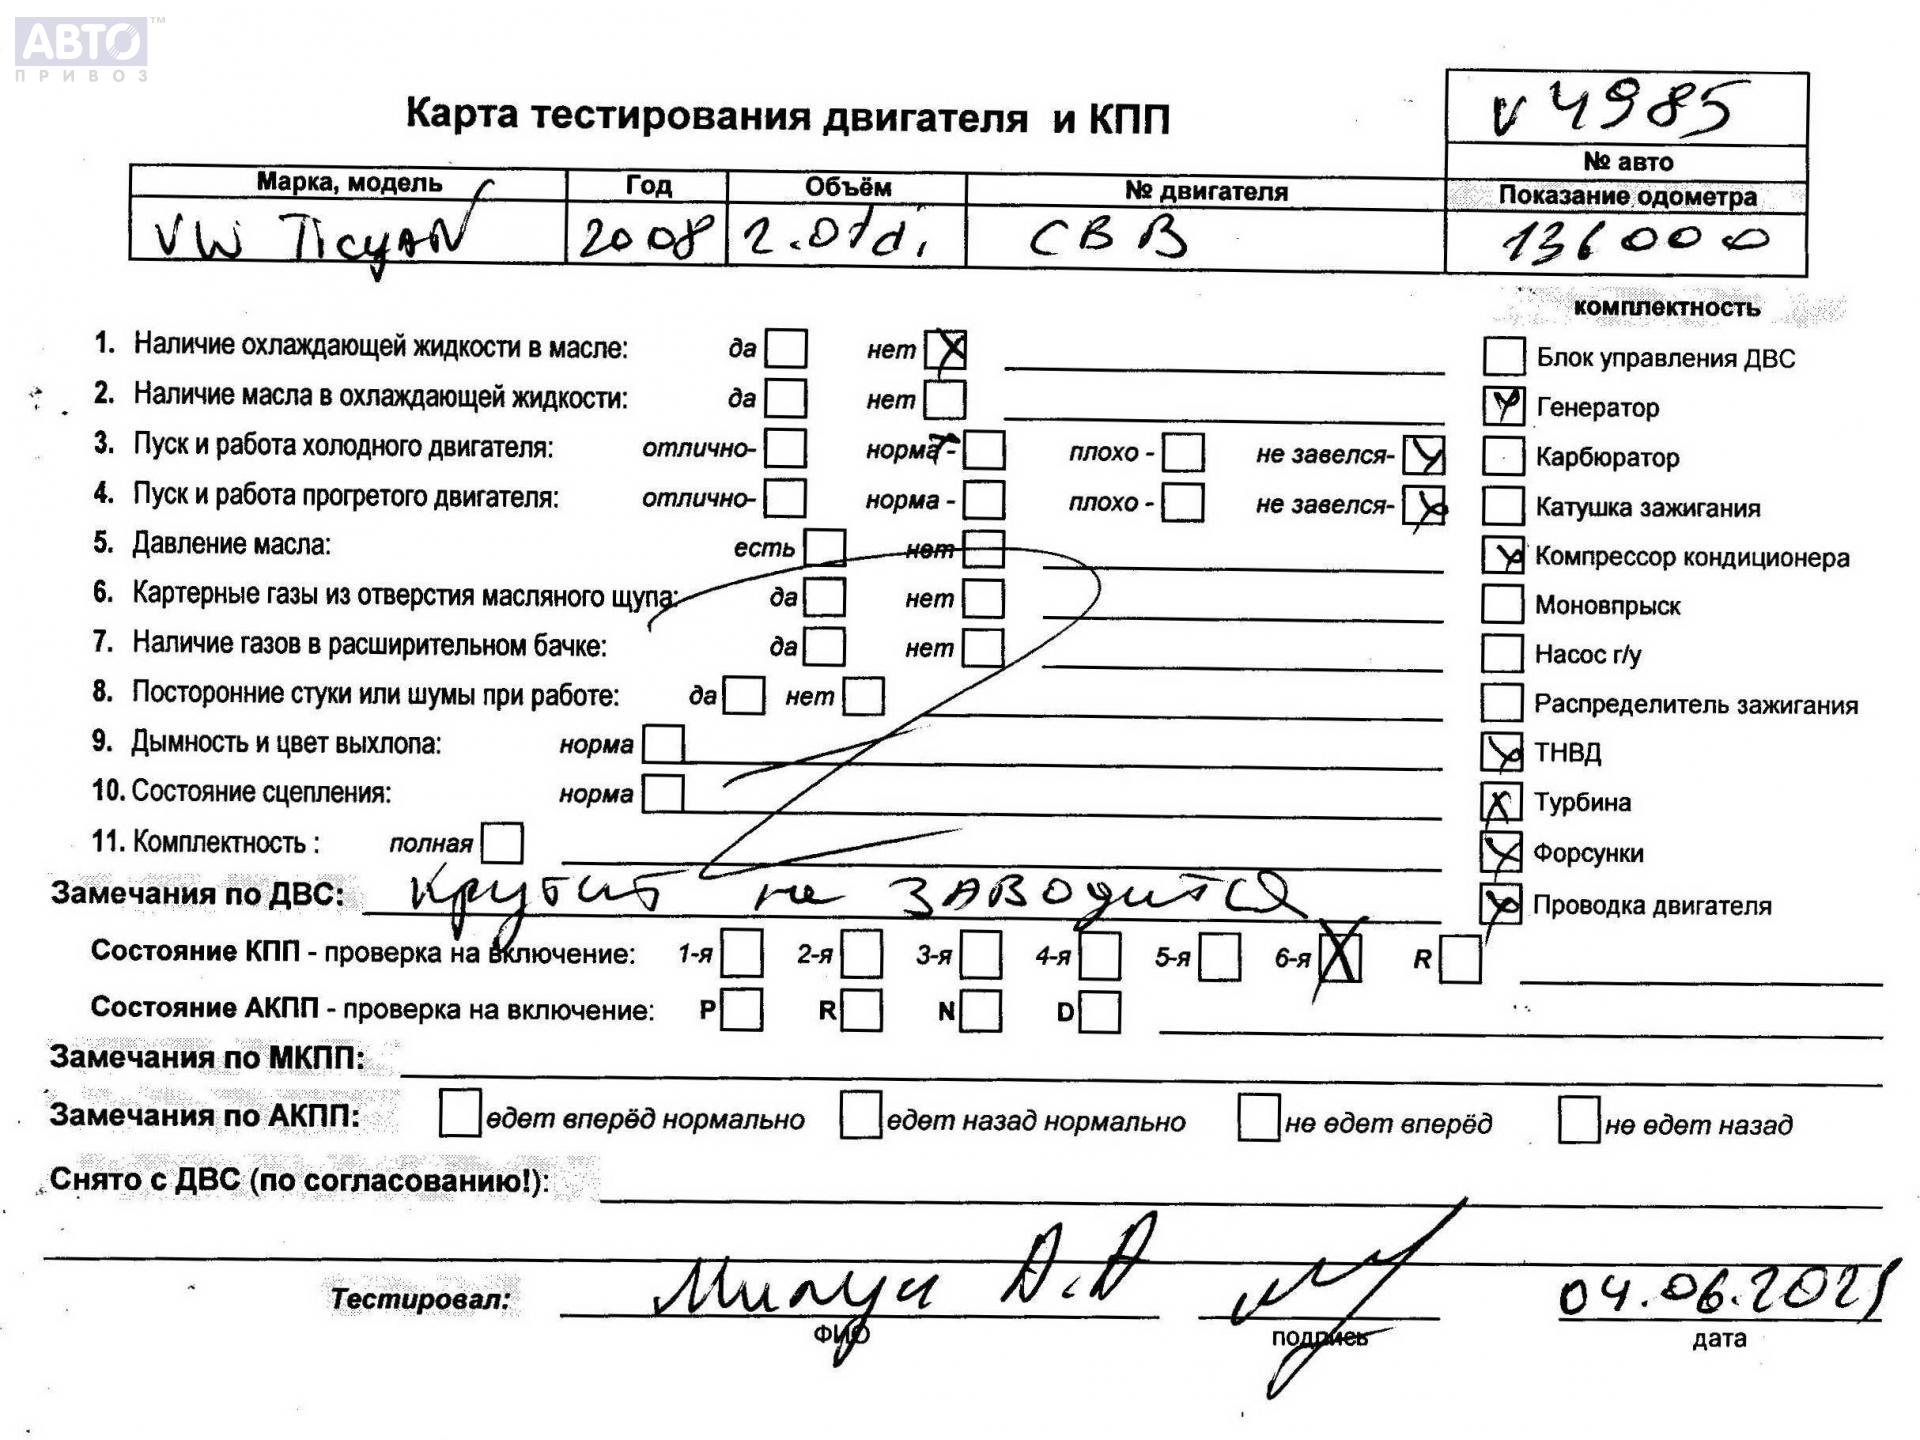 АВТО™
ПРИВОЗ
v 4985
Карта тестирования двигателя и КПП
№ авто
Марка, модель Год Объём № двигателя Показание одометра
VW TIGUAN 2008 2.0tdi CBB 136000
комплектность
1. Наличие охлаждающей жидкости в масле: да нет Блок управления ДВС
2. Наличие масла в охлаждающей жидкости: да нет Генератор
3. Пуск и работа холодного двигателя: отлично- норма - плохо - не завелся- Карбюратор
4. Пуск и работа прогретого двигателя: отлично- норма - плохо - не завелся- Катушка зажигания
5. Давление масла: есть нет Компрессор кондиционера
6. Картерные газы из отверстия масляного щупа: да нет Моновпрыск
7. Наличие газов в расширительном бачке: да нет Насос г/у
8. Посторонние стуки или шумы при работе: да нет Распределитель зажигания
9. Дымность и цвет выхлопа: норма ТНВД
10. Состояние сцепления: норма Турбина
11. Комплектность : полная Форсунки
Замечания по ДВС: крутит не заводится Проводка двигателя
Состояние КПП - проверка на включение: 1-я 2-я 3-я 4-я 5-я 6-я R
Состояние АКПП - проверка на включение: P R N D
Замечания по МКПП:
Замечания по АКПП: едет вперёд нормально едет назад нормально не едет вперёд не едет назад
Снято с ДВС (по согласованию!):
Тестировал: 04.06.2021
ФИО подпись дата